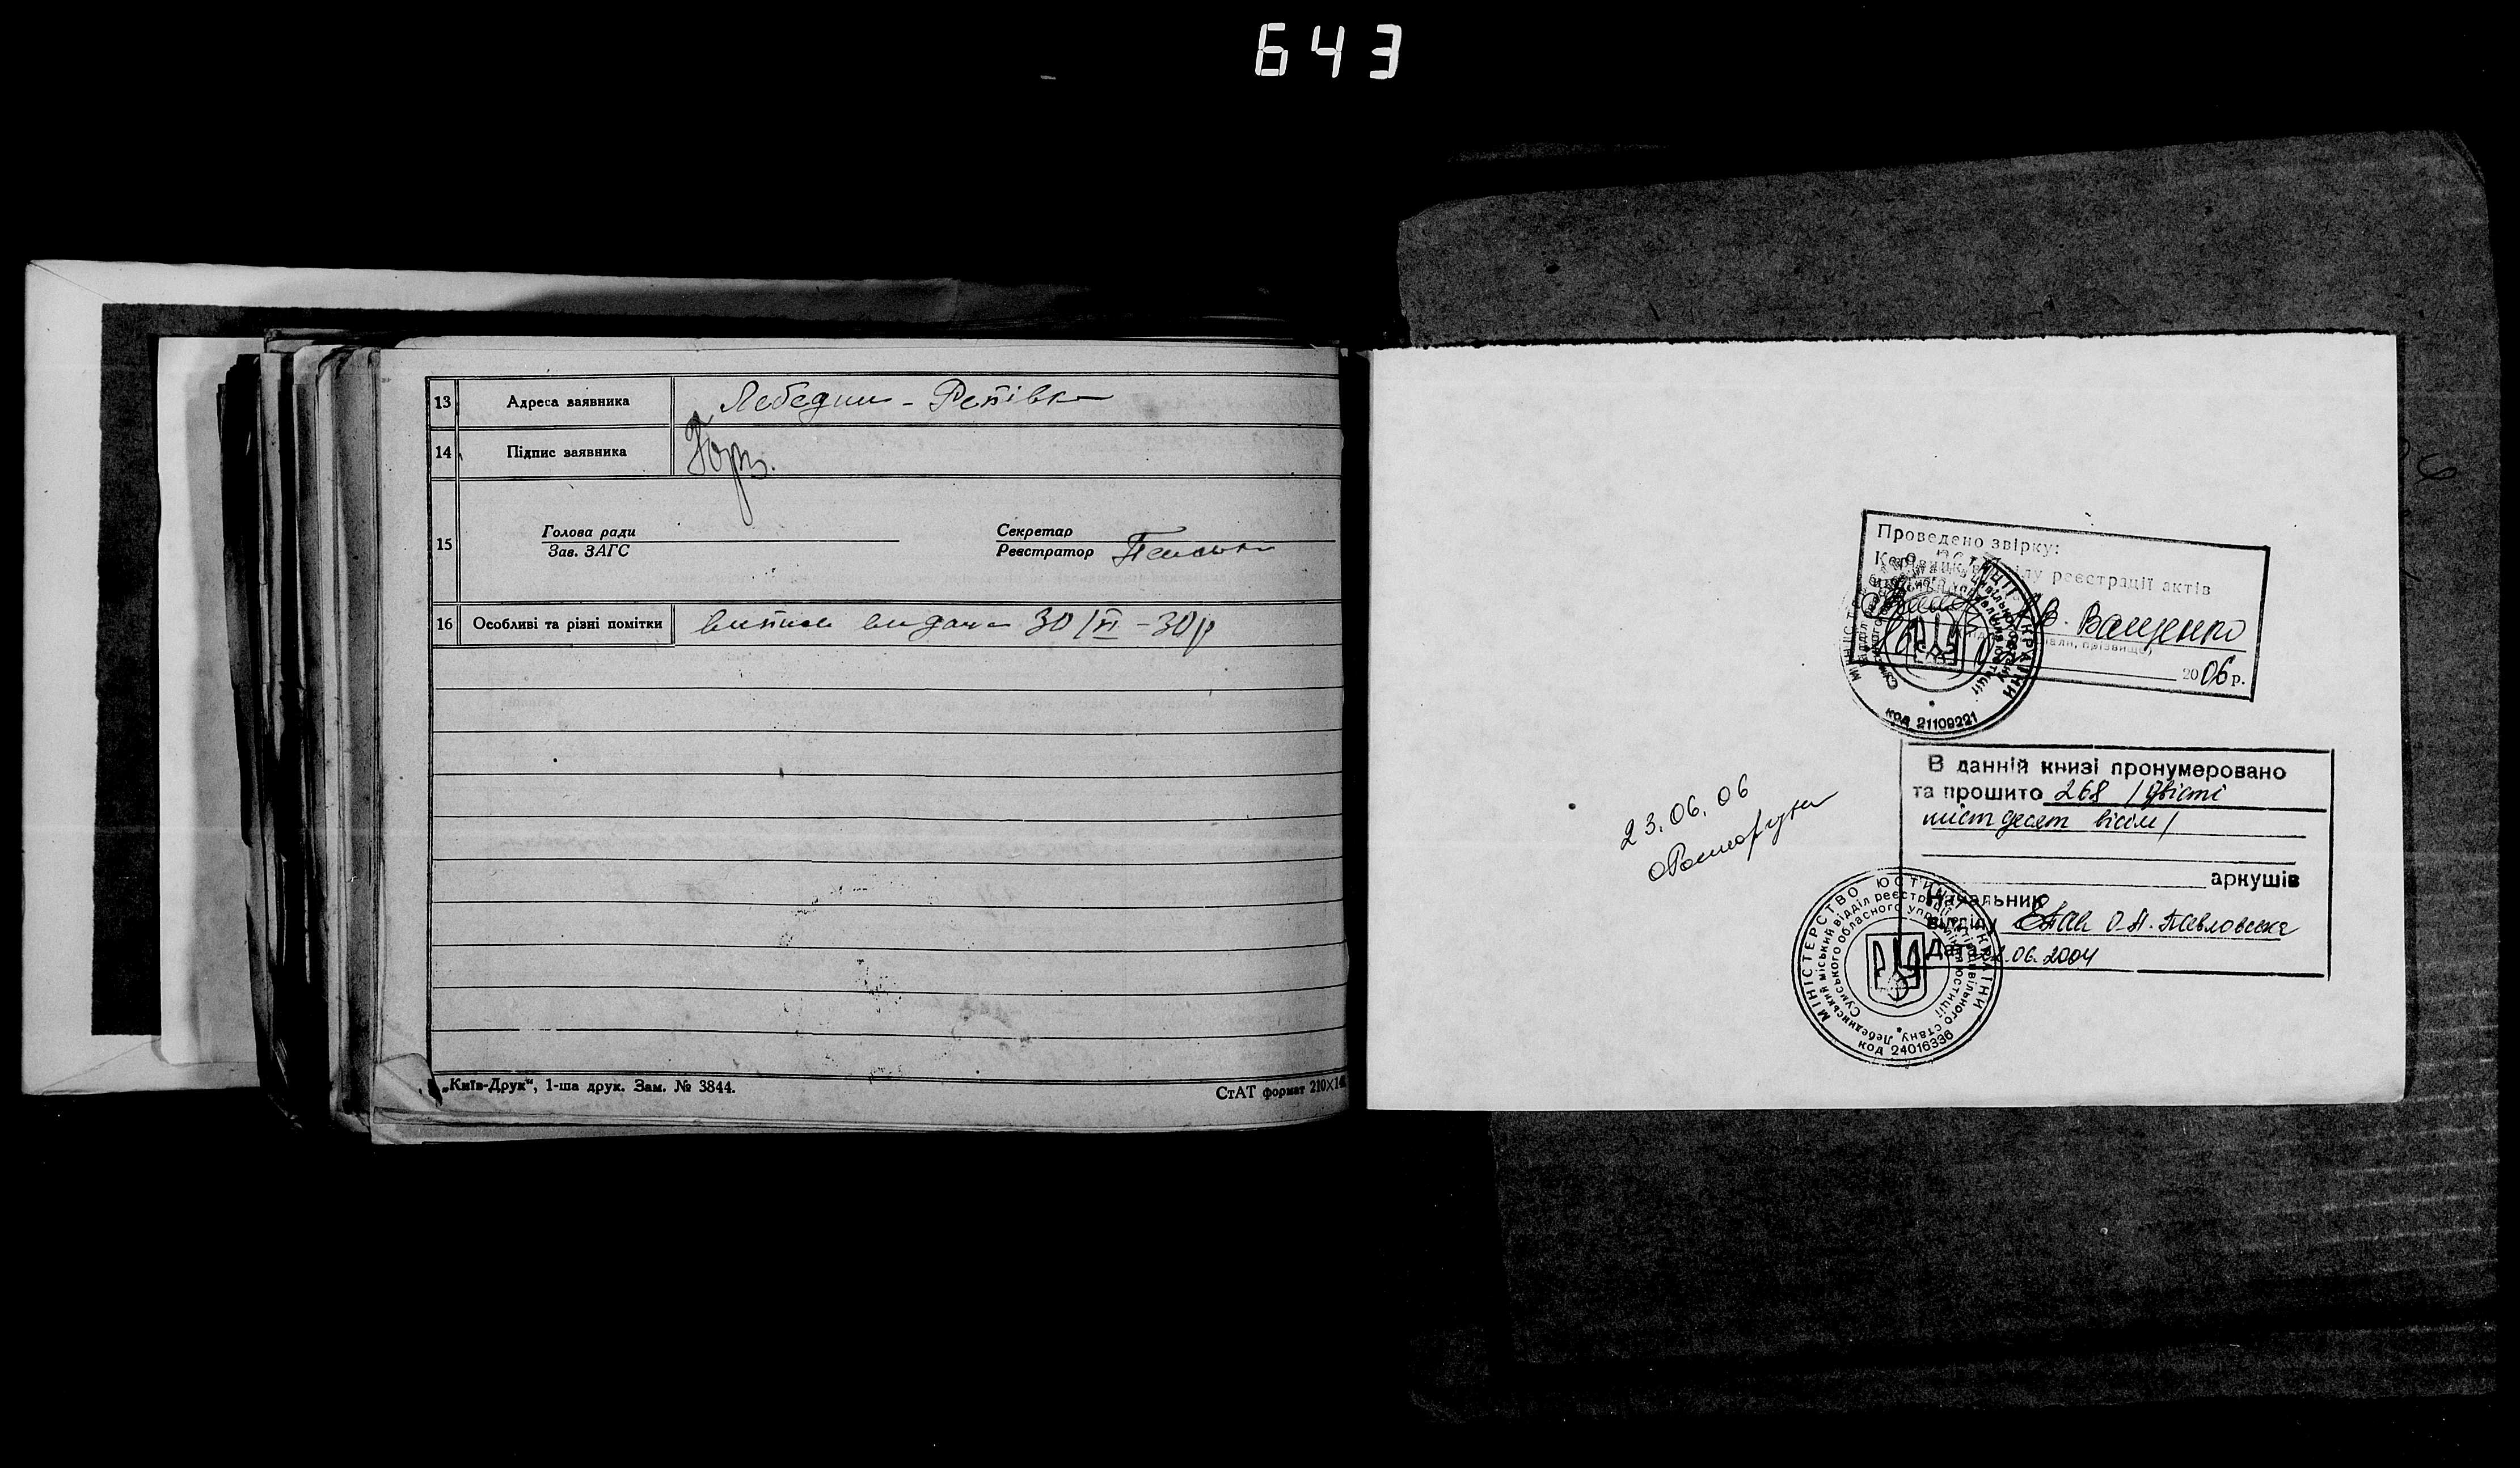 643
13 Адреса заявника Лебедин - Репівка
14 Підпис заявника
15 Голова ради
Зав. ЗАГС
Секретар
Реєстратор
16 Особливі та різні помітки виписк видано 30/XI - 30 р
„Київ-Друк“, 1-ша друк. Зам. № 3844.
СтАТ формат 210×14
Проведено звірку:
Керівник відділу реєстрації актів
В. Ващенко
2006 р.
УКРАЇНИ
код 21109221
23.06.06
В данній книзі пронумеровано
та прошито 268 /двісті
шістдесят вісім/
аркушів
Начальник
відділу О.П. Павловська
Дата .06.2004
МІНІСТЕРСТВО ЮСТИЦІЇ УКРАЇНИ
Лебединський міський відділ реєстрації актів цивільного стану
Сумського обласного управління юстиції
код 24016336